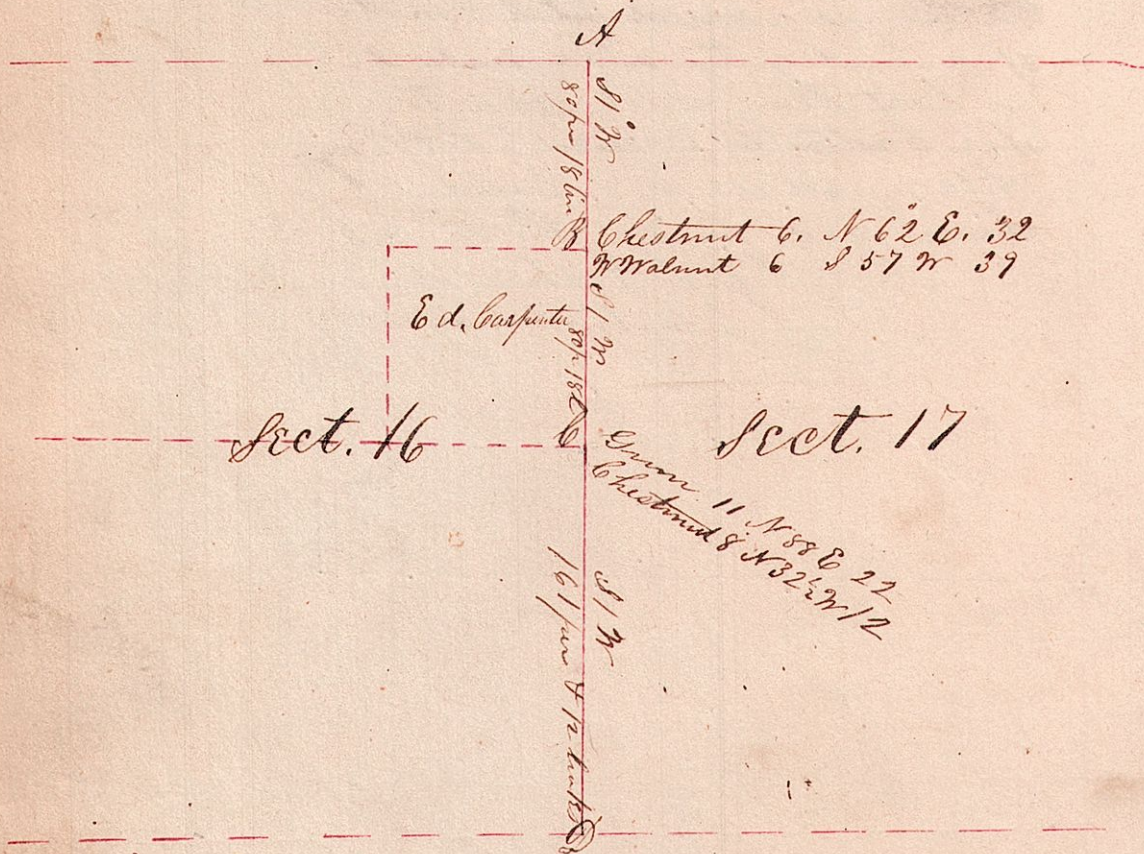 A
S 1° W
80 per 18 lin
B Chestnut 6. N 62 E. 32
W Walnut 6 S 57 W 39
S 1 W
Ed. Carpenter
80 p 18 l
C
Sect. 16
Sect. 17
Gum 11 N 88 E 22
Chestnut 8 N 32½ W 12
S 1 W
161 per & 12 links